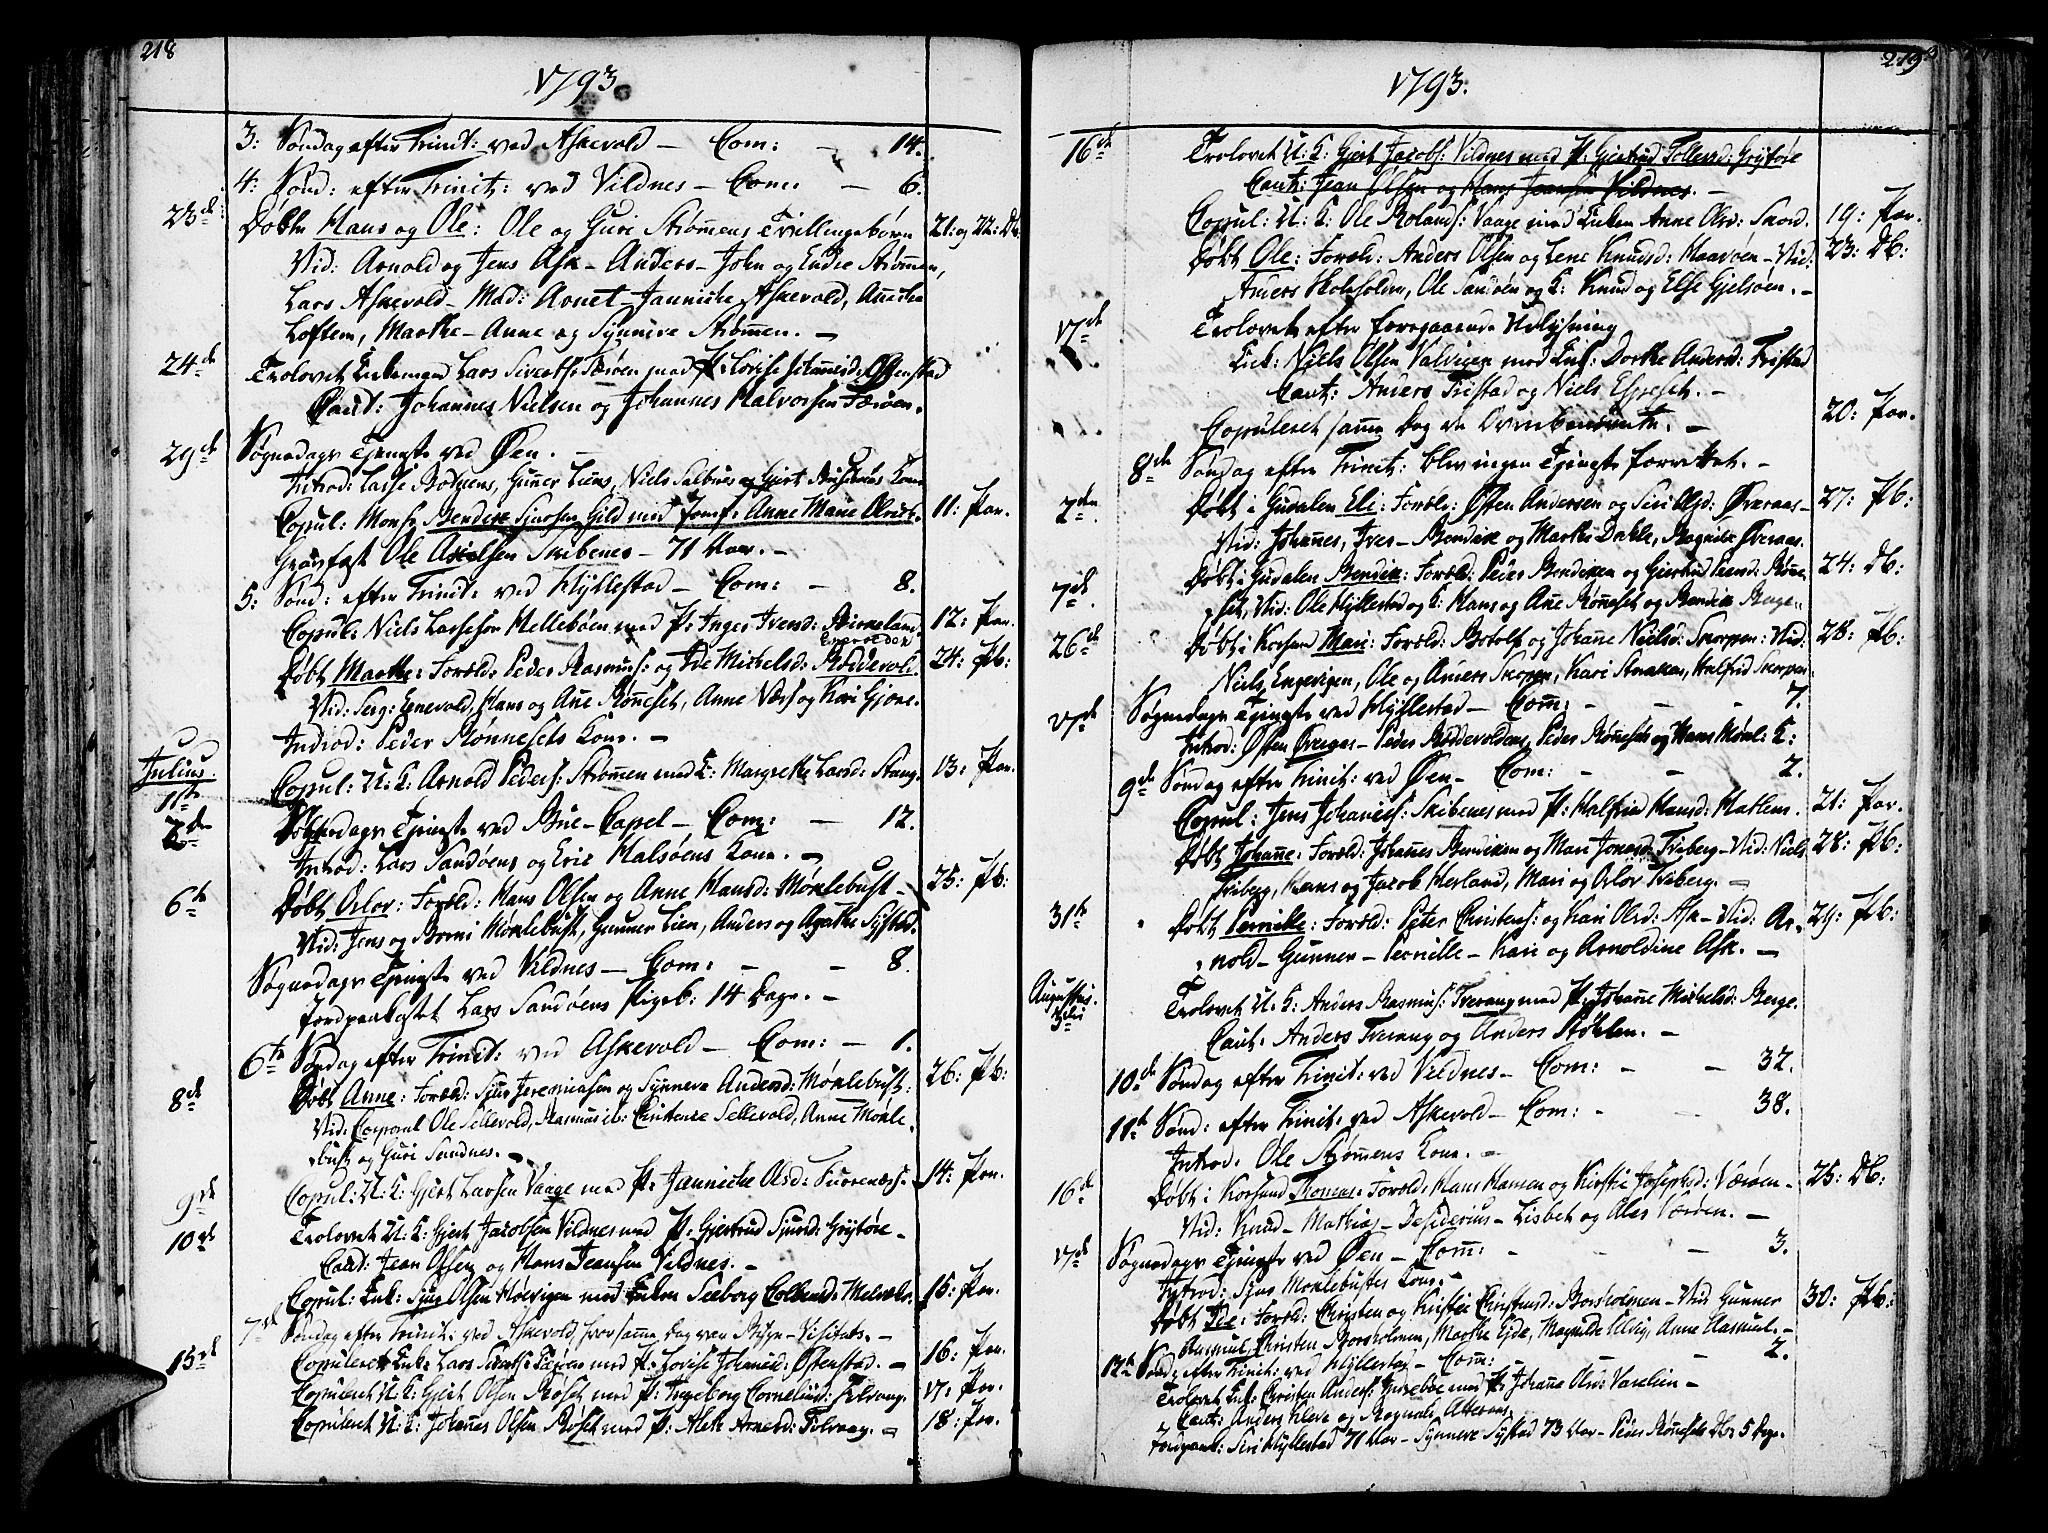 218
1793.
3: Søndag efter Trinit: ved Askevold — Com: — 14.
4: Sønd: efter Trinit: ved Vildnes — Com: — 6.
23de Døbte Hans og Ole: Ole og Guri Strømens Tvillingebørn 21: og 22: Db.
Vid: Arnold og Jens Ask — Anders — John og Endre Strømen,
Lars Askevold — Mad: Arnet — Jannicke Askevold, Anniche
Loftem, Marthe — Anne og Synneve Strømen. —
24de Trolovet Enkemand Lars Siverts: Færøen med P: Lovise Johannisd: Ostenstad
Caut: Johannes Nielsen og Johannes Halvorsen Færøen.
29de Søgnedags Tjeneste ved Øen. —
Introd: Lasse Botnens, Gunner Liens, Niels Salbues og Gjert Koner
Copul: Mons: Bendix Gild med Jomf: Anne Marie 11: Par.
Gravfæst Ole Axelsen Skibenes — 71 Aar. —
5: Sønd: efter Trinit: ved Hyllestad — Com: — 8.
Copul: Niels Lassesøn Hellebøen med P: Inger Iversd: Birkeland. 12: Par.
Døbt Marthe: Foreld: Peder Rasmus: og Ide Michelsd: Røddevold. 24: Pb:
Vid: Serg: Enevold, Hans og Ane Rønneset, Anne Næss og Kari Gjøne.
Introd: Peder Rønnesets Kone. —
Julius.
11te Copul: U: K: Arnold Peders: Strømen med E: Margrethe Larsd: Stang. 13: Par.
2den Søgnedags Tjeneste ved Bue-Capel — Com: — 12.
Introd: Lars Sandøens og Eric Halsøens Kone. —
6te Døbt Orlov: Foreld: Hans Olsen og Anne Hansd: Møklebust — 25: Pb:
Vid: Jens og Borni Møklebust, Gunner Lien, Anders og Agathe Systad.
Søgnedags Tjeneste ved Vildnes — Com: — — 8.
Jordpaakastet Lars Sandøens Pigeb: 14 Dage. —
6te Søndag efter Trinit: ved Askevold — Com: — 1.
8de Døbt Anne: Foreld: Sjur Jeremiasen og Synneva Andersd: Møklebust: 26: Pb:
Vid: Corporal Ole Sellevold, Rasmus ib: Sellevold, Anne Møkle-
bust og Guri Sandnes. —
9de Copul: U: K: Gjert Larsen Vaage med P: Jannicke Olsd: 14: Par.
10de Trolovet U: K: Gjert Jacobsen Vildnes med P: Gjertrud Sjursd: Grytøre —
Caut: Jean Olsen og Hans Jeansen Vildnes. —
Copul: Enk: Sjur Olsen Høevigen med Enken Seeborg 15: Par.
7de Søndag efter Trinit: ved Askevold, hvor samme Dag var Bispe-Visitats. —
15de Copuleret Enk: Lars Siverts: Færøen med P: Lovise Johanisd: Ostenstad. — 16: Par.
Copuleret U: K: Gjert Olsen Røset med P: Ingeborg Cornelisd: Tilvaag. 17: Par.
Copuleret U: K: Johannes Olsen Røset med P: Alet Arnesd: Tilvaag. — 18: Par.
219
1793.
16de Trolovet U: K: Gjert Jacobs: Vildnes med P: Gjertrud Tollersd: Grytøre
Caut: Jean Olsen og Hans Jeansen Vildnes. —
Copul: U: K: Ole Rolands: Vaage med Enken Anne Olsd: 19: Par.
Døbt Ole: Foreld: Anders Olsen og Lene Knudsd: Haarøen — Vid: 23: Db:
Anders Ole Sandøen og K: Knud og Else Gjelsøen. —
17de Trolovet efter foregaaende Udlysning
Enk: Niels Olsen Valvigen med Enk: Dorthe Andersd: Tristad
Caut: Anders Tristad og Niels Espeset. —
Copuleret samme Dag de Ovenbenævnte. — 20: Par.
8de Søndag efter Trinit: blev ingen Tjeneste forrettet. —
2den Døbt i Gudalen Eli: Foreld: Østen Andersen og Siri Olsd: Øveraas — 27: Pb:
Vid: Johannes, Iver — Bendix og Marthe Dahle, Ragnilde Øveraas.
7de Døbt i Gudalen Bendix: Foreld: Peder Bendixen og Gjertrud Rønne- 24: Db:
set, Vid: Ole Hyllestad og K: Hans og Ane Rønneset og Bendix Berge.
26de Døbt i Korsund Mari: Foreld: Botolf og Johanne Nielsd: Skorpen: Vid: 28: Pb:
Niels Engevigen, Ole og Anders Skorpen, Kari Halfrid Skorpen.
17de Søgnedags Tjeneste ved Hyllestad — Com: — — — 7.
Introd: Østen Øveraas — Peder Røddevoldens, Peder Rønnesets og Hans Mønl: K:
9de Søndag efter Trinit: ved Øen — Com: — — 2.
Copul: Jens Johaness: Skibenes med P: Halfrid Hansd: Hatlem. 21: Par.
Døbt Johanne: Foreld: Johannes Bendixen og Mari Jonasd: Triberg — Vid: Niels 28: Pb:
Triberg, Hans og Jacob Herland, Mari og Orlov Triberg. —
31te Døbt Pernille: Foreld: Peter Christens: og Kari Olsd: Ask — Vid: Ar- 29: Pb:
nold — Gunner — Pernille — Kari og Arnoldine Ask. —
Augustus.
Trolovet U: K: Anders Rasmus: Tverang med P: Johanne Michelsd: Berge.
Caut: Anders Tverang og Anders Støhlen. —
10de Søndag efter Trinit: ved Vildnes — Com: — — 32.
11te Sønd: efter Trinit: ved Askevold — Com: — — 38.
Introd: Ole Strømens Kone. —
16de Døbt i Korsund Thomas: Foreld: Hans Hansen og Kirstie Josephsd: Værøen — 25: Db:
Vid: Knud — Mathias — Desiderius — Lisbet og Ales Værøen. —
17de Søgnedags Tjeneste ved Øen — Com: — — — 3.
Introd: Sjur Møklebustes Kone. —
Døbt Ide: Foreld: Christen og Kirstie Christensd: Borsholmen — Vid: Gunner 30: Pb:
Aasmul, Christen Borsholmen, Marthe Eide, Magnilde Anne Aasmul. —
12te Sønd: efter Trinit: ved Hyllestad — Com: — — 2.
Trolovet Enk: Christen Anders: med P: Johanna Olsd: Vaselien —
Caut: Anders Kleve og Ragnald Atteraas.
Jordpaak: Siri Hyllestad 71 Aar — Synneve Systad 73 Aar — Peder Rønnesets Db: 5 Dage.